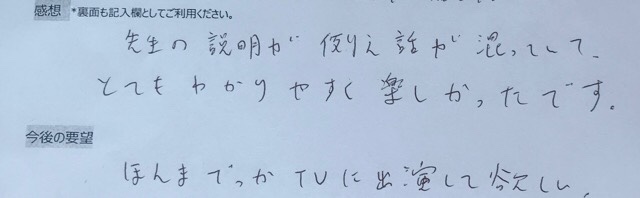 感想 *裏面も記入欄としてご利用ください。
先生の説明が例え話が混っていて、
とてもわかりやすく楽しかったです。
今後の要望
ほんまでっかTVに出演して欲しい。